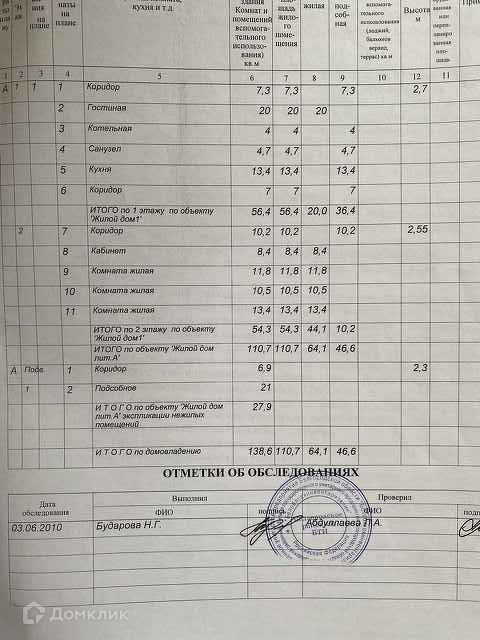 здания
Комнат и
помещений
вспомога-
тельного
использо-
вания)
кв м
кухня и т.д.
ния
на
плане
наты
на
плане
жило-
го
поме-
щения
жилая
под-
соб-
ная
вспомога-
тельного
использования
(лоджий,
балконов
веранд,
террас) кв м
Высота
м
1 2 3 4 5 6 7 8 9 10 12 11
А 1 1 1 Коридор 7,3 7,3 7,3 2,7
2 Гостиная 20 20 20
3 Котельная 4 4 4
4 Санузел 4,7 4,7 4,7
5 Кухня 13,4 13,4 13,4
6 Коридор 7 7 7
ИТОГО по 1 этажу по объекту 'Жилой дом1' 56,4 56,4 20,0 36,4
2 7 Коридор 10,2 10,2 10,2 2,55
8 Кабинет 8,4 8,4 8,4
9 Комната жилая 11,8 11,8 11,8
10 Комната жилая 10,5 10,5 10,5
11 Комната жилая 13,4 13,4 13,4
ИТОГО по 2 этажу по объекту 'Жилой дом1' 54,3 54,3 44,1 10,2
ИТОГО по объекту 'Жилой дом лит.А' 110,7 110,7 64,1 46,6
А Подв. 1 Коридор 6,9 2,3
1 2 Подсобное 21
И Т О Г О по объекту 'Жилой дом лит.А' экспликации нежилых помещений 27,9
И Т О Г О по домовладению 138,6 110,7 64,1 46,6
ОТМЕТКИ ОБ ОБСЛЕДОВАНИЯХ
Дата обследования
Выполнил
Проверил
ФИО подпись ФИО
03.06.2010 Бударова Н.Г. Абдуллаева Л.А.
БТИ
Российская Федерация
Домклик